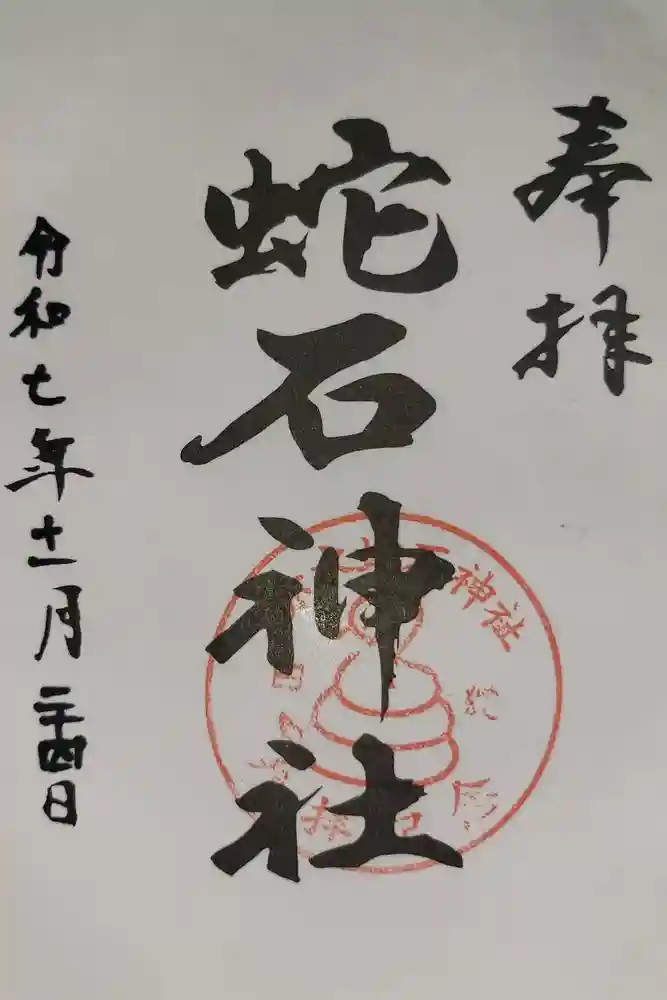 奉拝
蛇石神社
令和七年十一月二十四日
石神社